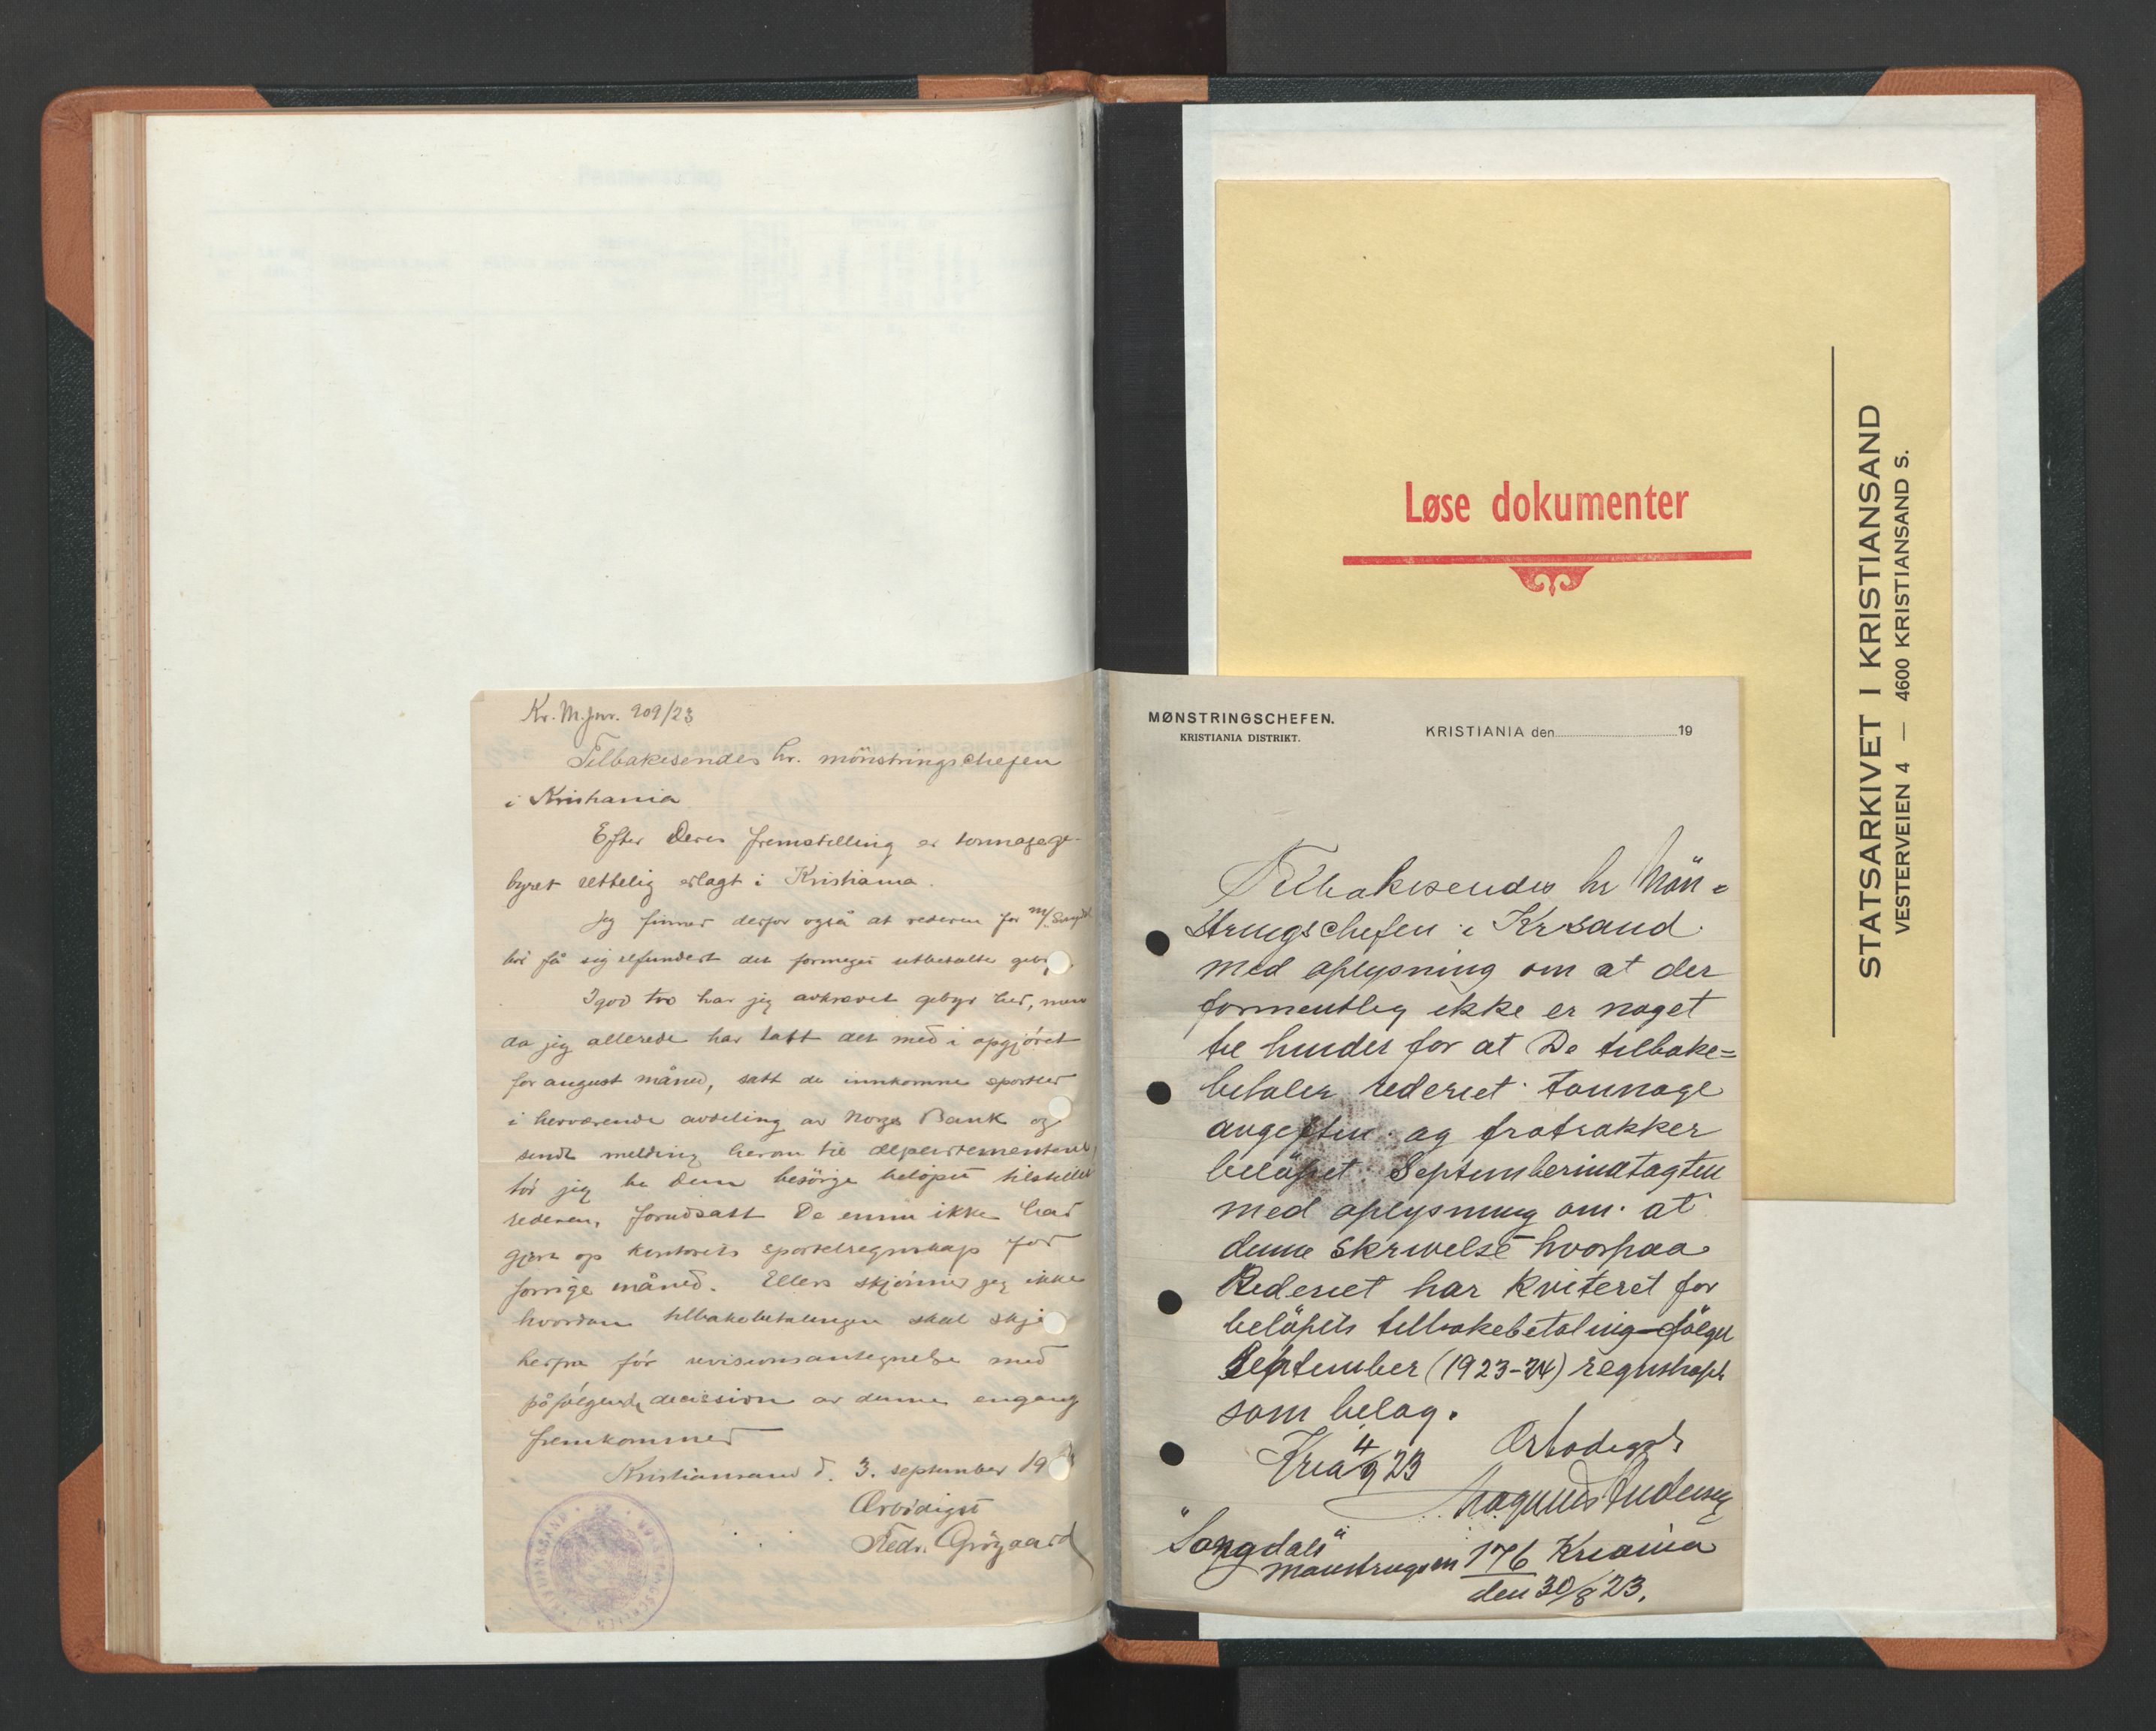 Kr. M. Jnr. 909/23
Tilbakesendes hr. mönstringschefen
i Kristiania.
Efter Deres fremstilling er tonnagege-
byret rettelig erlagt i Kristiania.
Jeg finner derfor også at rederen for M/
bör få sig refundert det formeget utbetalte
I god tro har jeg avkrævet gebyr her, men
da jeg allerede har tatt det med i opgjöret
for august måned, satt de innkomne sportler
i herværende avdeling av Norges Bank og
sendt melding herom til departementet,
tör jeg be Dem besörge belöpet tilstillet
rederen, forudsatt De ennu ikke har
gjort op kontorets sportelregnskap for
forrige måned. Ellers skjönner jeg ikke
hvordan tilbakebetalingen skal skje
herfra för revisionsantegnelse med
påfölgende decission av denne engang
fremkommer
Kristiansand d. 3. september 19
Ærbödigst
Fredr. Grögaard
Løse dokumenter
STATSARKIVET I KRISTIANSAND
VESTERVEIEN 4 — 4600 KRISTIANSAND S.
MØNSTRINGSCHEFEN.
KRISTIANIA DISTRIKT.
KRISTIANIA den 19
Tilbakesendes hr Mön=
stringschefen i Krsand
med oplysning om at der
formentlig ikke er noget
til hinder for at De tilbake=
betaler rederiet tonnage
avgiften og fratrækker
belöpet Septemberindtægten
med oplysning om at
denne skrivelse hvorpaa
Rederiet har kviteret for
belöpets tilbakebetaling fölger
September (1923-24) regnskapet
som belag.
Kria 4/9 23 Ærbödigst
Magnus Andersen
"Songdal"
Mönstringen 176 Kriania
den 30/8 23.